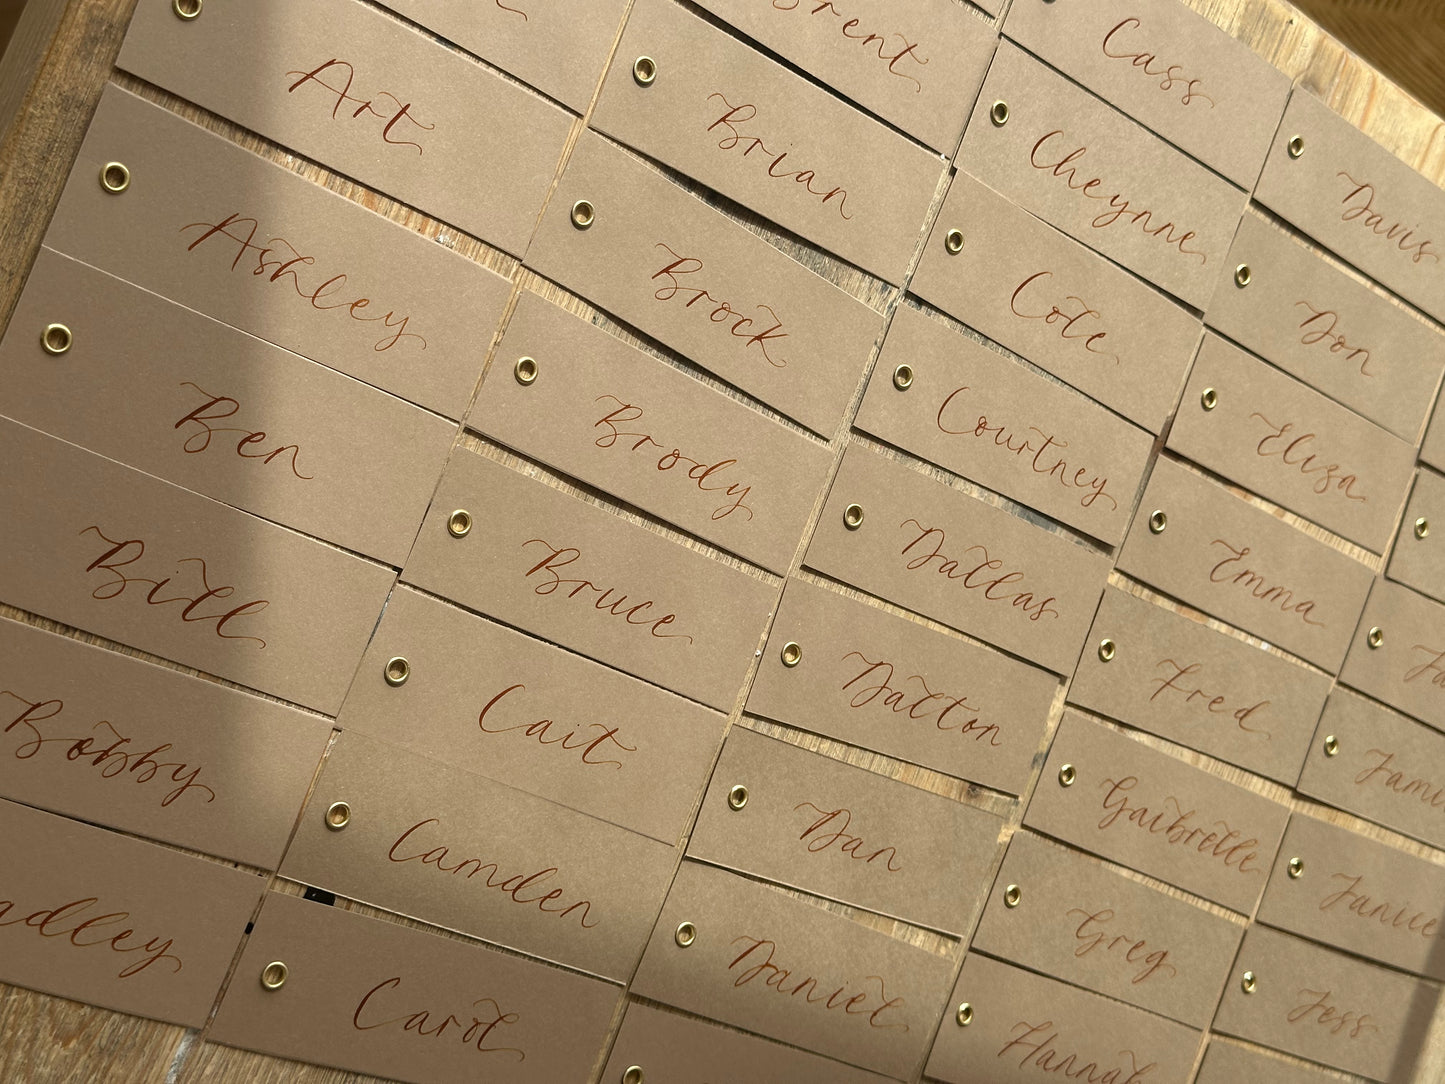 Art
Ashley
Ben
Bill
Bobby
Brian
Brock
Brody
Bruce
Cait
Camden
Carol
Cass
Cheynne
Cole
Courtney
Dallas
Dalton
Dan
Daniel
Davis
Don
Eliza
Emma
Fred
Gaibrelle
Greg
Hannah
Janice
Jess